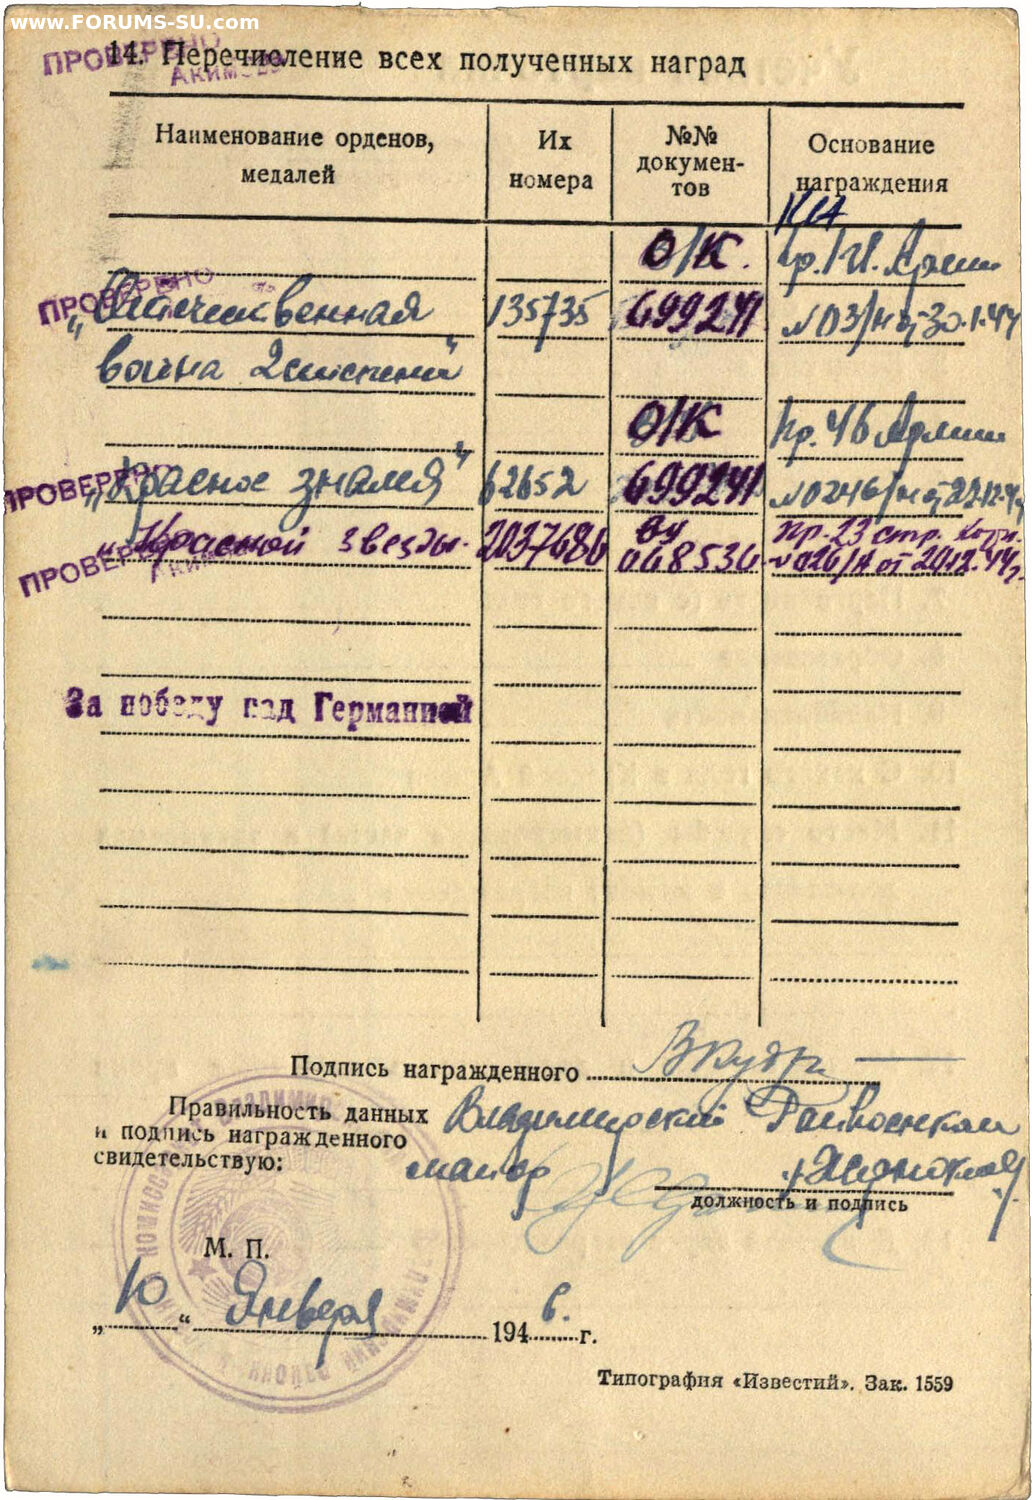 www.FORUMS-SU.com
ПРОВЕРЕНО
14. Перечисление всех полученных наград
Наименование орденов, медалей
Их номера
№№ документов
Основание награждения
О/К.
ПРОВЕРЕНО
"Отечественная 135735 699241 №03/н от 30.1.44
война 2 степени"
О/К Пр. 46 Армии
ПРОВЕРЕНО
"Красное знамя" 62652 699241 №0246/н от
"Красной звезды. 2037686 068536 Пр. 23 стр. Корп.
№026/н от
ПРОВЕРЕНО
За победу над Германией
Подпись награжденного
Правильность данных
и подпись награжденного
свидетельствую:
Владимирский Райвоенком
майор
должность и подпись
М. П.
„10“ Января 1946.г.
Типография «Известий». Зак. 1559